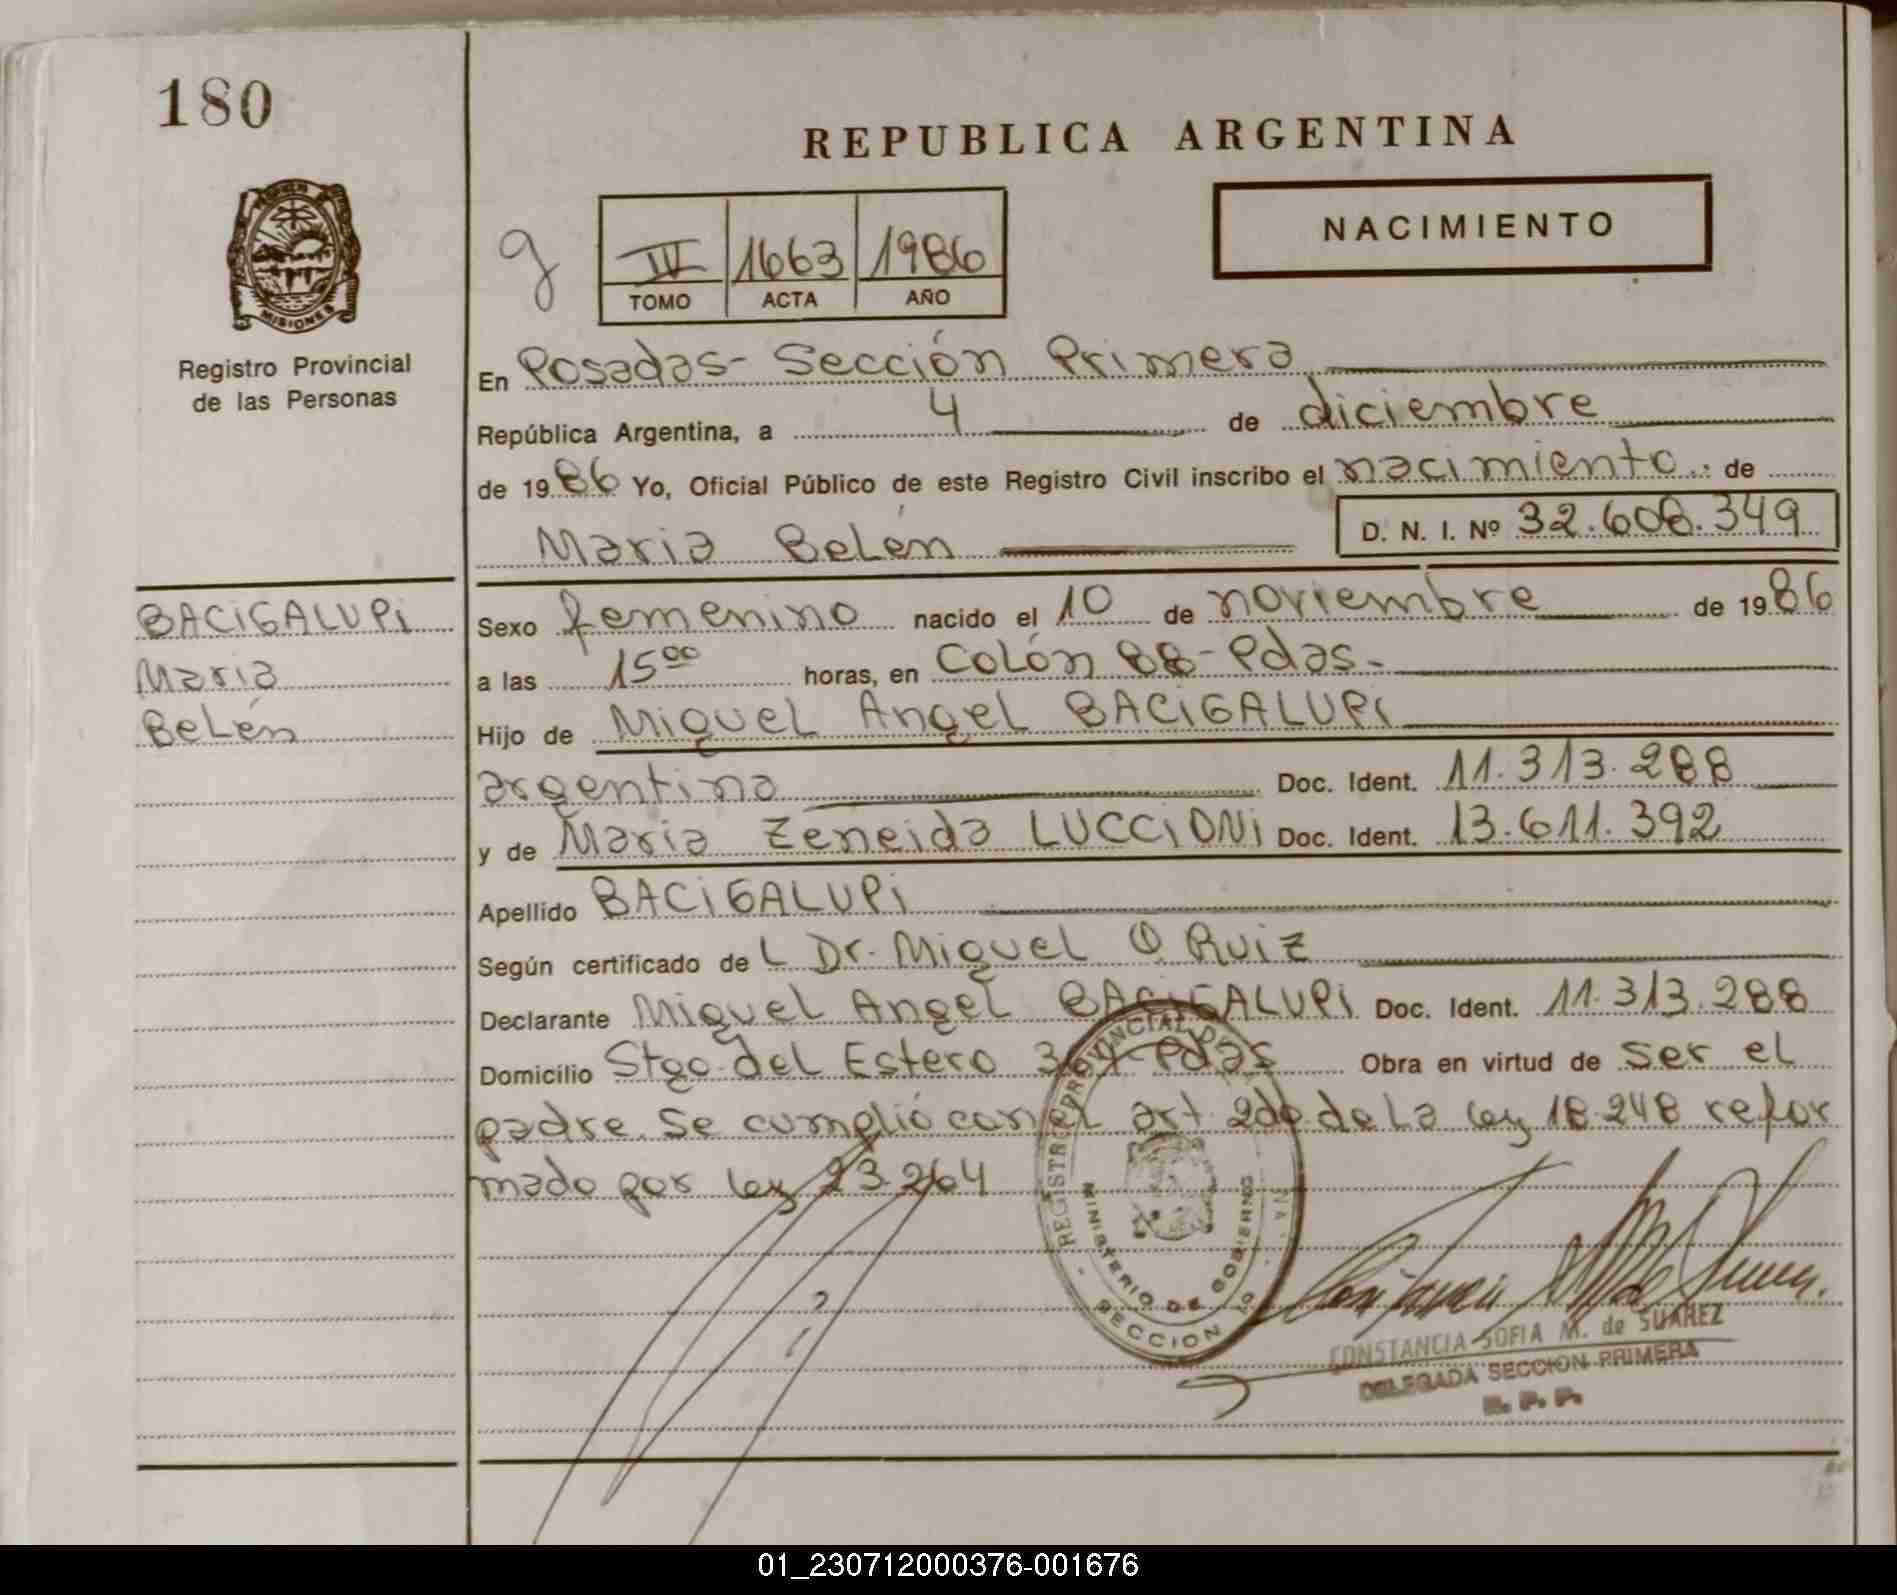 180
REPUBLICA ARGENTINA
MISIONES
Registro Provincial
de las Personas
g
IV 1663 1986
TOMO ACTA AÑO
NACIMIENTO
En Posadas- Sección Primera
República Argentina, a 4 de diciembre
de 1986 Yo, Oficial Público de este Registro Civil inscribo el nacimiento : de
Maria Belén D. N. I. Nº 32.608.349
BACIGALUPI
Maria
Belén
Sexo femenino nacido el 10 de noviembre de 1986
a las 15 00 horas, en Colón 88- Pdas.-
Hijo de Miguel Angel BACIGALUPI
argentina Doc. Ident. 11.313.288
y de Maria Zeneida LUCCIONI Doc. Ident. 13.611.392
Apellido BACIGALUPI
Según certificado de L Dr. Miguel O Ruiz
Declarante Miguel Angel BACIGALUPI Doc. Ident. 11.313.288
Domicilio Stgo del Estero Pdas Obra en virtud de ser el
padre. Se cumplió con el art. 2do de la ley 18.248 refor
mado por ley 23.264
REGISTRO PROVINCIAL DE
MINISTERIO DE GOBIERNO
SECCION 1º
CONSTANCIA SOFIA M. de SUAREZ
DELEGADA SECCION PRIMERA
R. P. P.
01_230712000376-001676